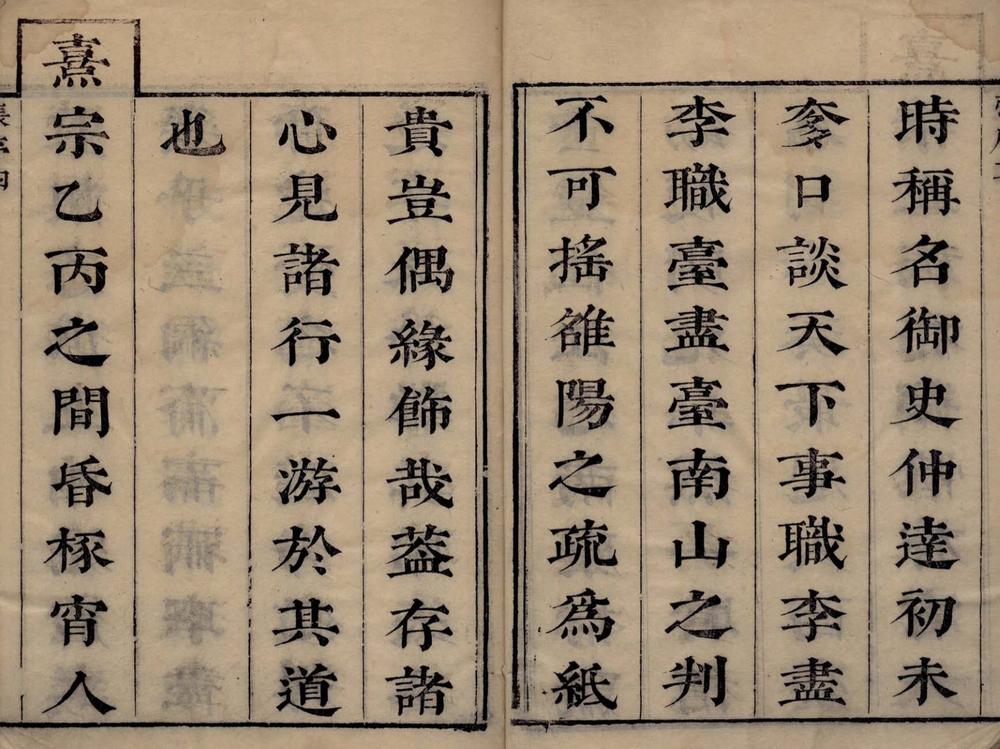 時稱名御史仲逹初未
奓口談天下事職李盡
李職臺盡臺南山之判
不可搖雒陽之疏爲紙
貴豈偶緣飾哉葢存諸
心見諸行一游於其道
也
熹宗乙丙之間昏椓宵人